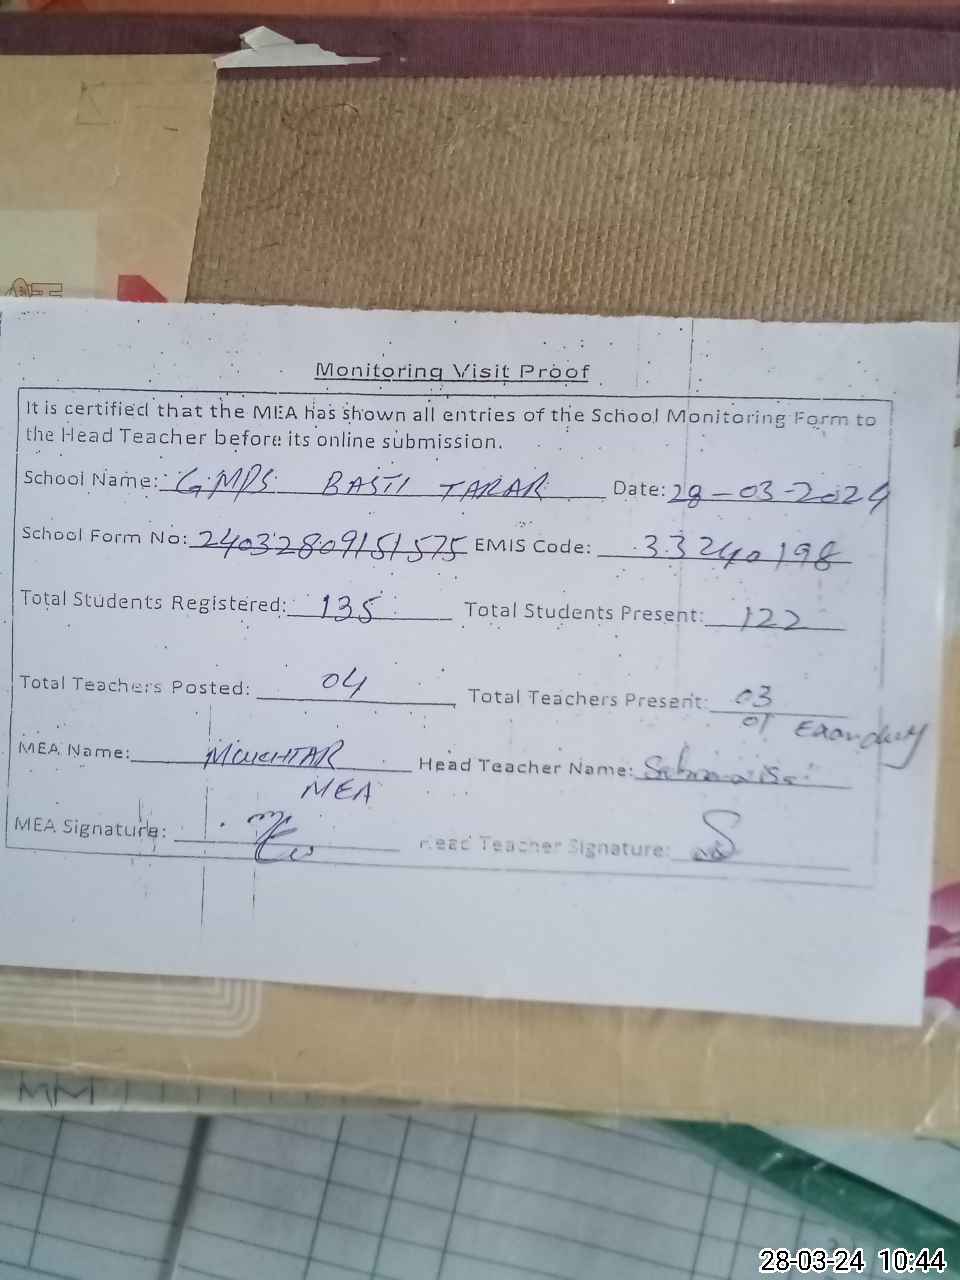 Monitoring Visit Proof
It is certified that the MEA has shown all entries of the School Monitoring Form to
the Head Teacher before its online submission.
School Name: GMPS BASTI TARAR Date: 28-03-2024
School Form No: 24032809151575 EMIS Code: 33240198
Total Students Registered: 135 Total Students Present: 122
Total Teachers Posted: 04 Total Teachers Present: 03
01 Exam duty
MEA Name: MUCHTAR Head Teacher Name:
MEA
MEA Signature: Head Teacher Signature:
MM
28-03-24 10:44